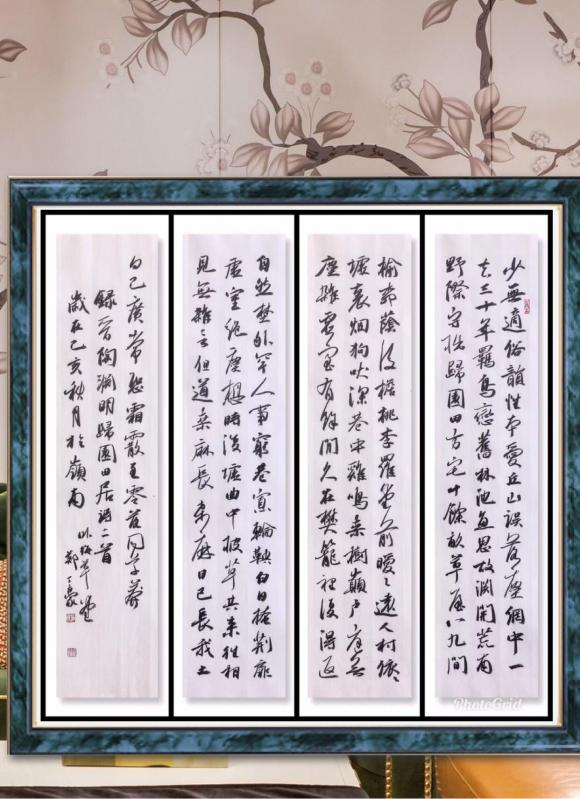 少無適俗韻性本愛丘山誤落塵網中一
去三十年羈鳥戀舊林池魚思故淵開荒南
野際守拙歸園田方宅十餘畝草屋八九間
榆柳蔭後檐桃李羅堂前曖々遠人村依々
墟裏烟狗吠深巷中雞鳴桑樹顛戶庭無
塵雜虛室有餘閒久在樊籠裡復得返
自然野外罕人事窮巷寡輪鞅白日掩荊扉
虛室絕塵想時復墟曲中披草共來往相
見無雜言但道桑麻長桑麻日已長我土
日已廣常恐霜霰至零落同草莽
錄晉陶淵明歸園田居詩二首
歲在己亥秋月於嶺南
草堂
鄭
PhotoGrid